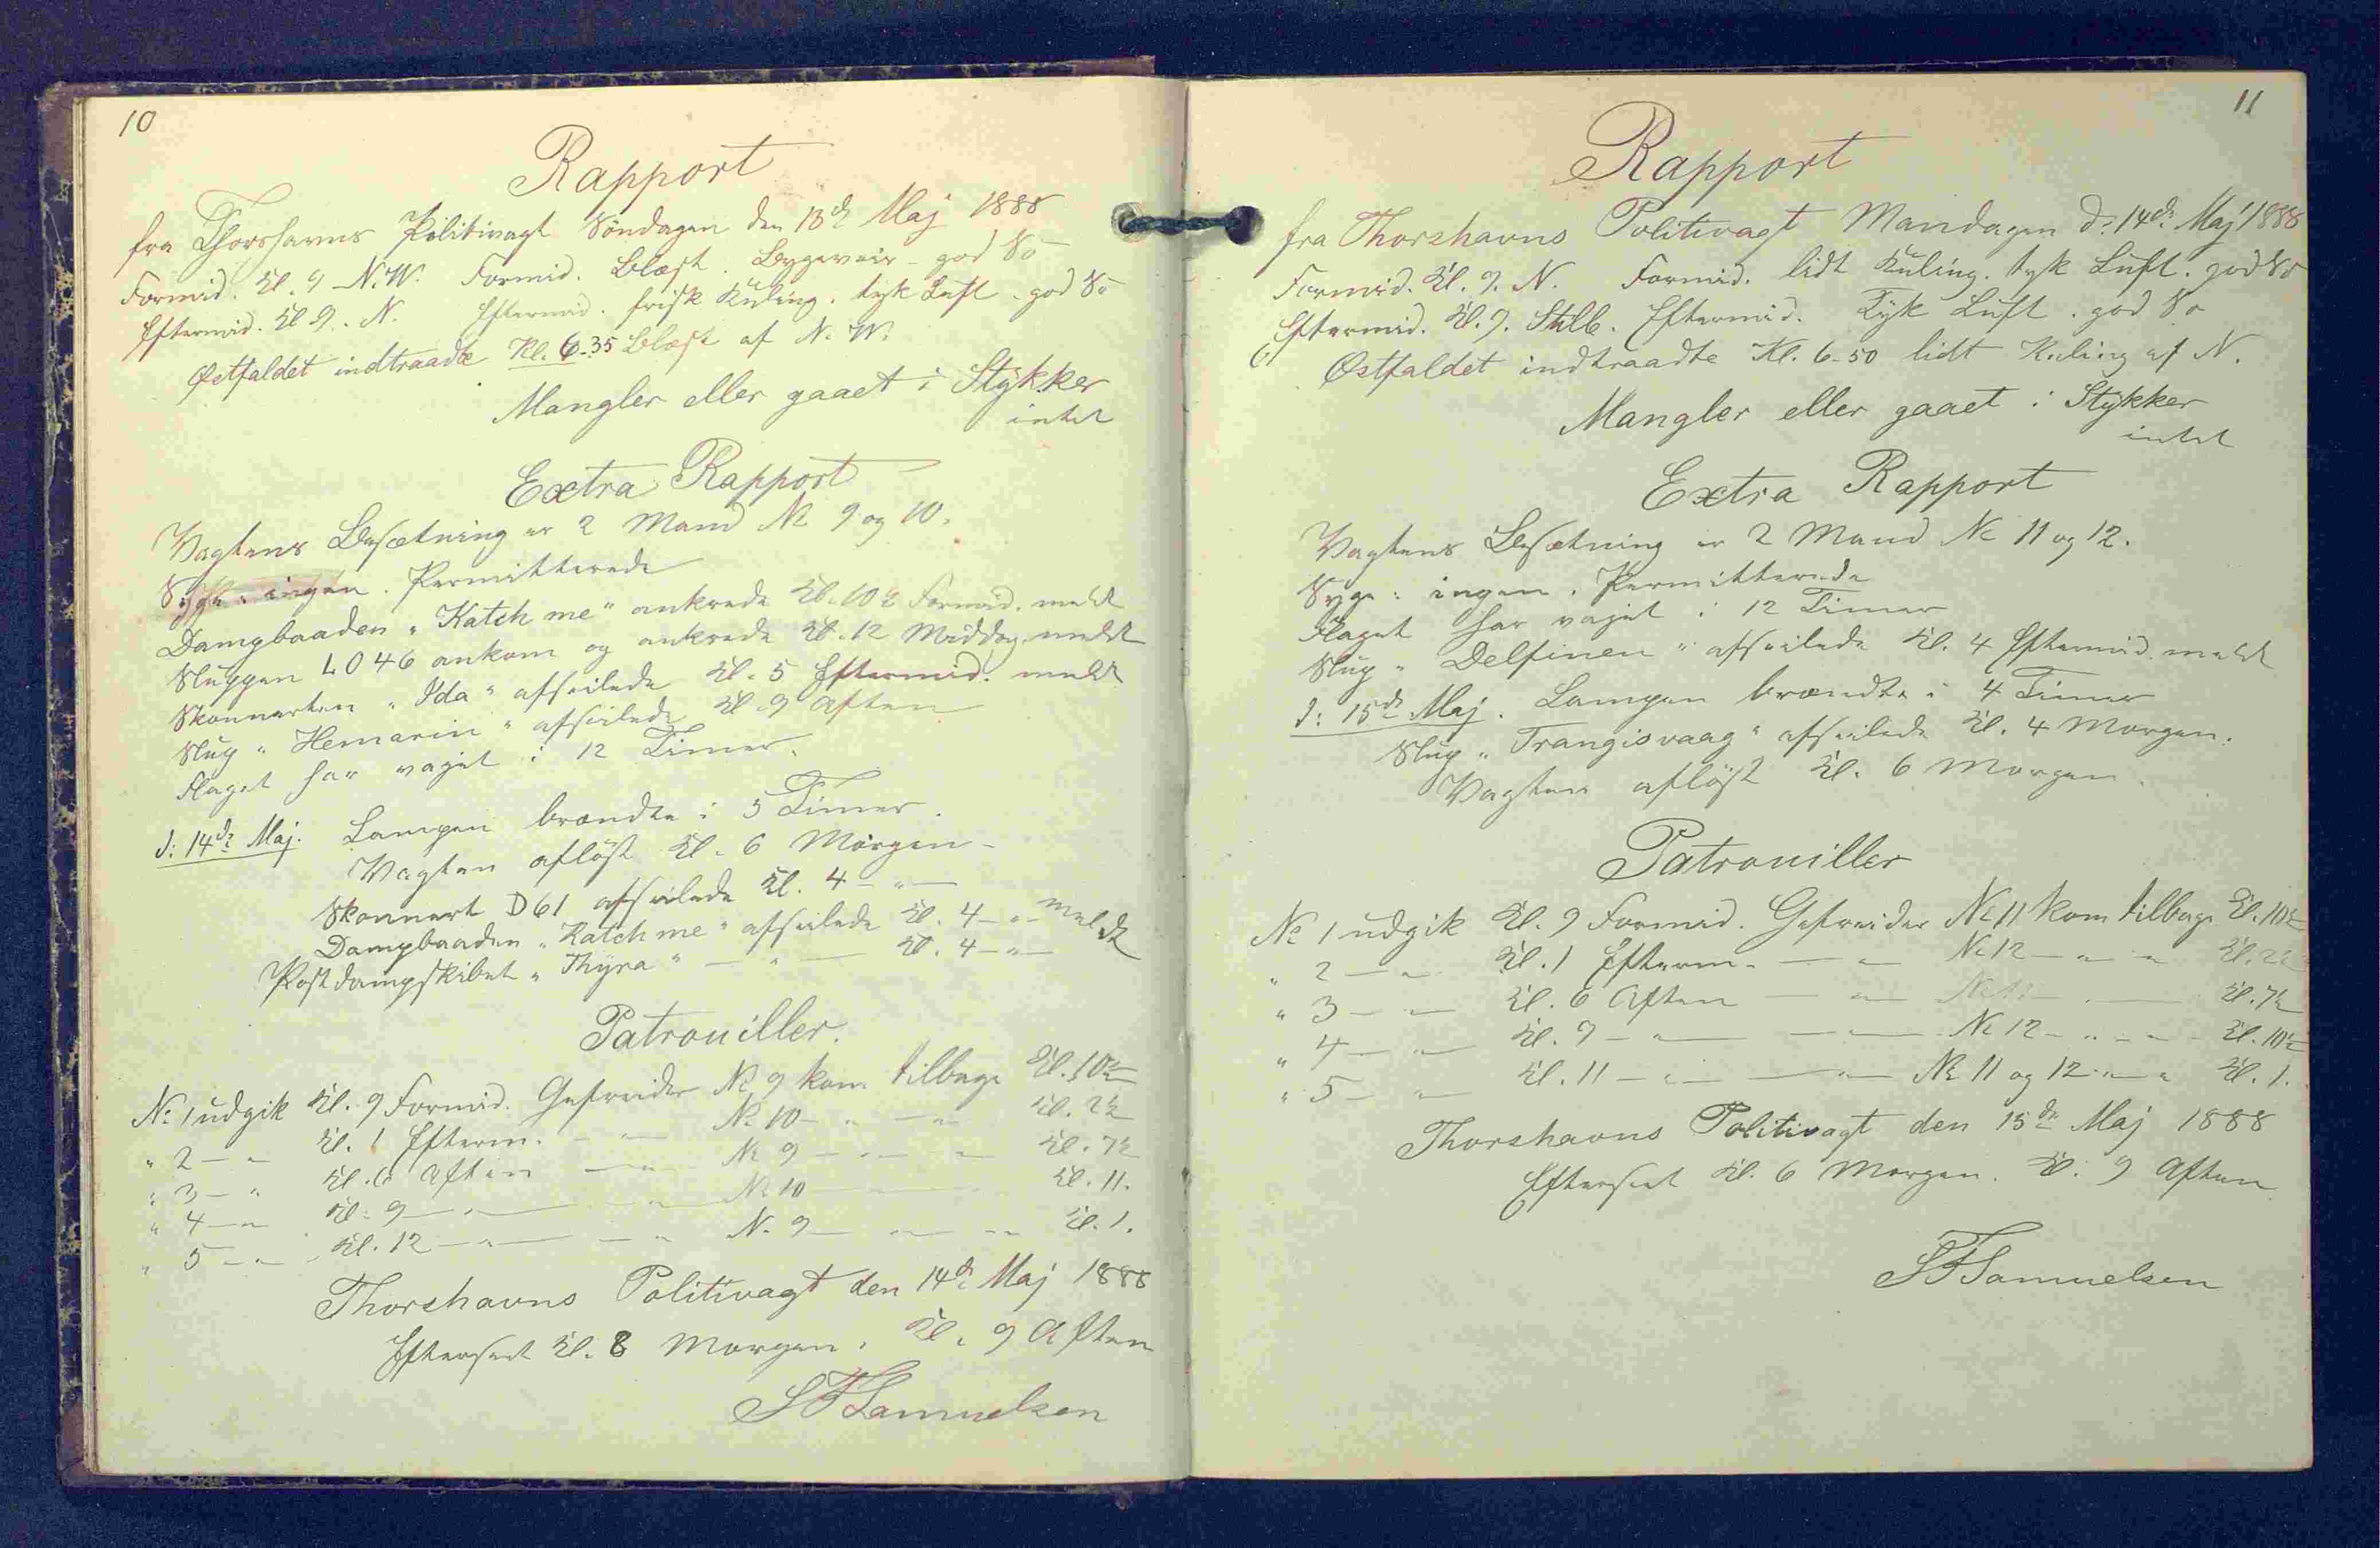 10
Rapport
fra Thorshavns Politivagt Söndagen den 13de Maj 1888
Formid. Kl. 9 N.W. Formid. Blæst. Bygeveir - god So
Eftermid. Kl. 9. N. Eftermid. frisk Kuling. tyk Luft. god So
Østfaldet indtraadte Kl. 6-35 Blæst af N. W.
Mangler eller gaaet i Stykker
intet
Extra Rapport
Vagtens Besætning er 2 Mand No 9 og 10.
Syge: ingen. Permitterede
Dampbaaden "Katch me" ankrede Kl. 10½ Formid. meldt
Sluppen LO46 ankom og ankrede Kl. 12 Middag meldt
Skonnerten "Ida" afseilede Kl. 5 Eftermid. meldt
Slup "Hemarin" afseilede Kl. 9 Aften
Flaget har vajet i 12 Timer.
d: 14de Maj. Lampen brændte i 5 Timer.
Vagten aflöst Kl. 6 Morgen -
Skonnert D61 afseilede Kl. 4 - " -
Dampbaaden "Katch me" afseilede Kl. 4 - " - meldt
Postdampskibet "Thyra" - " - Kl. 4 - " -
Patrouiller.
No 1 udgik Kl. 9 Formid. Gefreider No 9 kom tilbage Kl. 10½
" 2 - " Kl. 1 Efterm. - " - No 10 - " - " - Kl. 2½
" 3 - " Kl. 6 Aften - " - No 9 - " - " Kl. 7½
" 4 - " Kl. 9 - " - " - No 10 - Kl. 11.
" 5 - " - Kl. 12 - " - - " N. 9 - " - " Kl. 1.
Thorshavns Politivagt den 14de Maj 1888
Efterseet Kl. 8 Morgen. Kl. 9 Aften
SFSamuelsen
11
Rapport
fra Thorshavns Politivagt Mandagen d: 14de Maj 1888
Formid. Kl. 9. N. Formid. lidt Kuling. tyk Luft. god So
Eftermid. Kl. 9. Stille. Eftermid. Tyk Luft. god So
Østfaldet indtraadte Kl. 6-50 lidt Kuling af N.
Mangler eller gaaet i Stykker
intet
Extra Rapport
Vagtens Besætning er 2 Mand No 11 og 12.
Syge: ingen. Permitterede
Flaget har vajet i 12 Timer
Slup "Delfinen" afseilede Kl. 4 Eftermid. meldt
d: 15de Maj. Lampen brændte i 4 Timer
Slup "Trangisvaag" afseilede Kl. 4 Morgen.
Vagten aflöst Kl. 6 Morgen.
Patrouiller
No 1 udgik Kl. 9 Formid. Gefreider No 11 kom tilbage Kl. 10½
" 2 - " Kl. 1 Efterm. - " No 12 - " - " Kl. 2½
" 3 - " - Kl. 6 Aften - " - No 11 - Kl. 7½
" 4 - " - Kl. 9 - " - - " - No 12 - " - " - Kl. 10½
" 5 - " - Kl. 11 - " - - " - No 11 og 12 - " - " Kl. 1.
Thorshavns Politivagt den 15de Maj 1888
Efterseet Kl. 6 Morgen. Kl. 9 Aften
SFSamuelsen